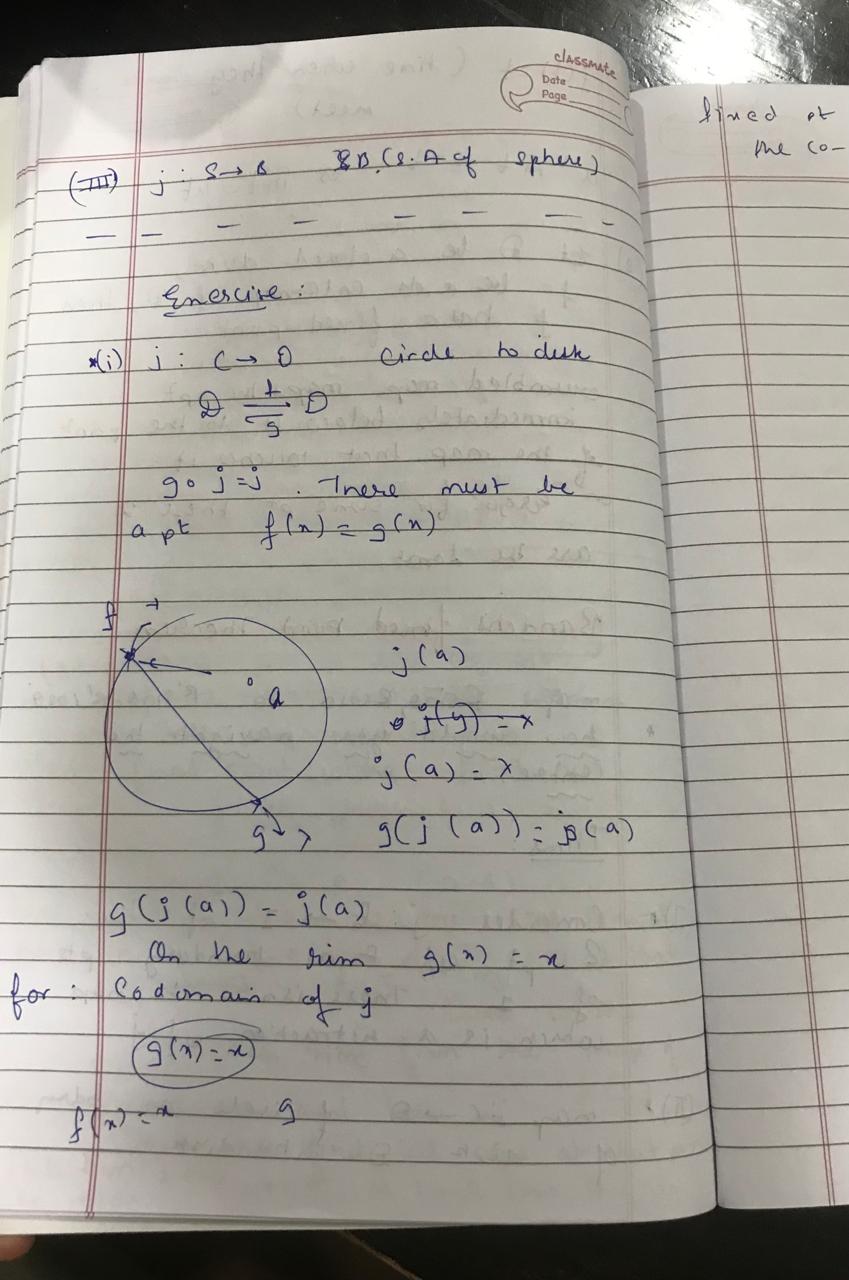 classmate
Date
Page
fixed pt
the co-
(III) j : S → B 3D (S.A of sphere)
Exercise :
*(i) j : C → D Circle to disk
D f g D
g o j = j . There must be
a pt f(x) = g(x)
f
a
g
j(a)
j(y) = x
j(a) = x
g(j(a)) = j(a)
g(j(a)) = j(a)
On the rim g(x) = x
for : Codomain of j
g(x) = x
f(x) = x g